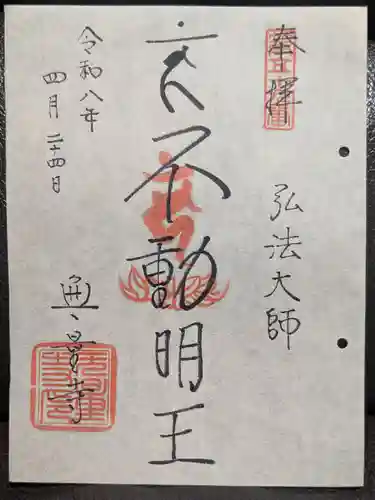 奉拝
弘法大師
不動明王
令和八年
四月二十四日
寺